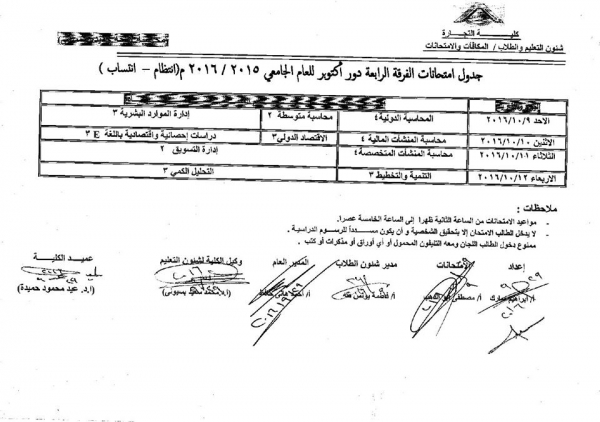 كلية التجارة
شئون التعليم والطلاب / المكافآت والامتحانات
جدول امتحانات الفرقة الرابعة دور أكتوبر للعام الجامعي ٢٠١٥ / ٢٠١٦ م(انتظام – انتساب )
الاحد ٢٠١٦/١٠/٩ المحاسبة الدولية ٤ محاسبة متوسطة ٢ إدارة الموارد البشرية ٣
الاثنين ٢٠١٦/١٠/١٠ محاسبة المنشآت المالية ٤ الاقتصاد الدولي ٣ دراسات إحصائية واقتصادية باللغة E ٣
الثلاثاء ٢٠١٦/١٠/١١ محاسبة المنشآت المتخصصة ٤ إدارة التسويق ٢
الاربعاء ٢٠١٦/١٠/١٢ التنمية والتخطيط ٣ التحليل الكمي ٣
ملاحظات :
- مواعيد الامتحانات من الساعة الثانية ظهرا إلى الساعة الخامسة عصرا.
- لا يدخل الطالب الامتحان إلا بتحقيق الشخصية و أن يكون مسدداً للرسوم الدراسية .
ممنوع دخول الطالب اللجان ومعه التليفون المحمول أو أي أوراق أو مذكرات أو كتب .
إعداد الامتحانات مدير شئون الطلاب المدير العام وكيل الكلية لشئون التعليم عميد الكلية
أ/ إبراهيم مبارك أ/ مصطفى أ/ فاطمة (ا.د. عيد محمود حميدة)